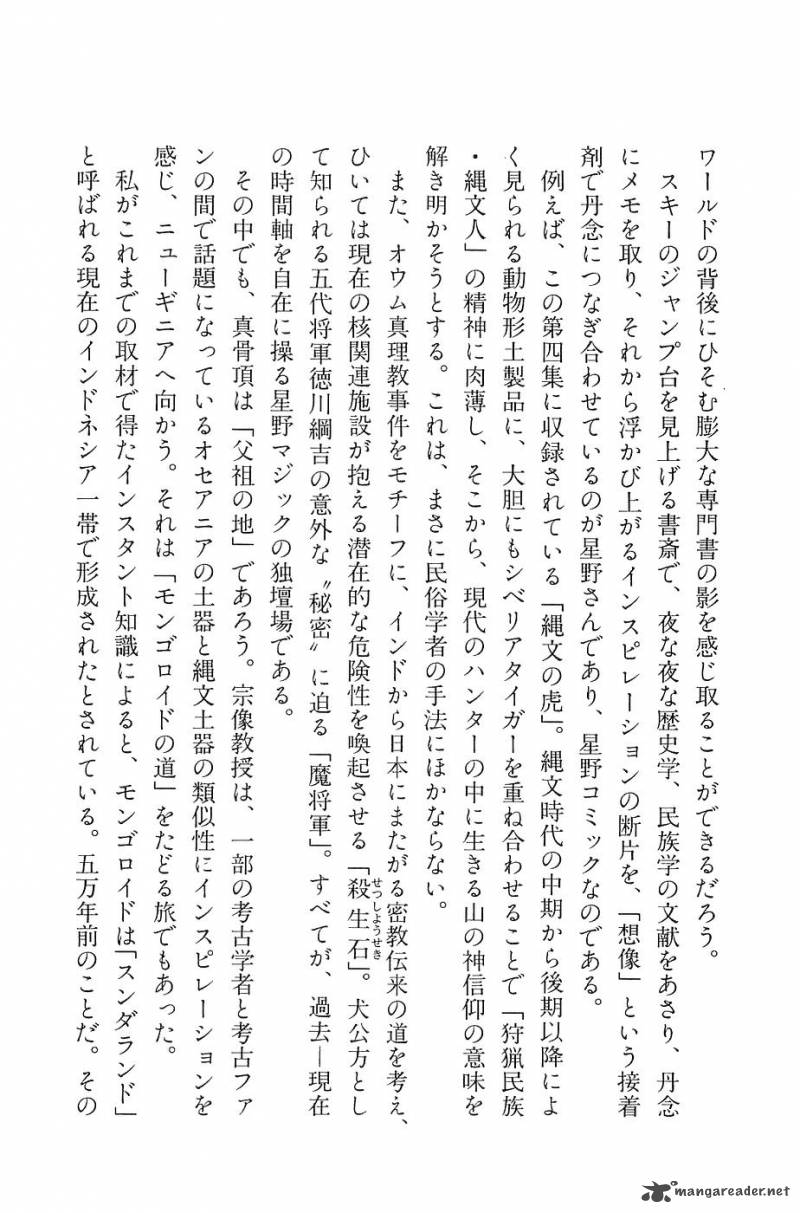 ワールドの背後にひそむ膨大な専門書の影を感じ取ることができるだろう。
　スキーのジャンプ台を見上げる書斎で、夜な夜な歴史学、民族学の文献をあさり、丹念
にメモを取り、それから浮かび上がるインスピレーションの断片を、「想像」という接着
剤で丹念につなぎ合わせているのが星野さんであり、星野コミックなのである。
　例えば、この第四集に収録されている「縄文の虎」。縄文時代の中期から後期以降によ
く見られる動物形土製品に、大胆にもシベリアタイガーを重ね合わせることで「狩猟民族
・縄文人」の精神に肉薄し、そこから、現代のハンターの中に生きる山の神信仰の意味を
解き明かそうとする。これは、まさに民俗学者の手法にほかならない。
　また、オウム真理教事件をモチーフに、インドから日本にまたがる密教伝来の道を考え、
ひいては現在の核関連施設が抱える潜在的な危険性を喚起させる「殺生石せつしようせき」。犬公方とし
て知られる五代将軍徳川綱吉の意外な〝秘密〟に迫る「魔将軍」。すべてが、過去―現在
の時間軸を自在に操る星野マジックの独壇場である。
　その中でも、真骨頂は「父祖の地」であろう。宗像教授は、一部の考古学者と考古ファ
ンの間で話題になっているオセアニアの土器と縄文土器の類似性にインスピレーションを
感じ、ニューギニアへ向かう。それは「モンゴロイドの道」をたどる旅でもあった。
　私がこれまでの取材で得たインスタント知識によると、モンゴロイドは「スンダランド」
と呼ばれる現在のインドネシア一帯で形成されたとされている。五万年前のことだ。その
mangareader.net